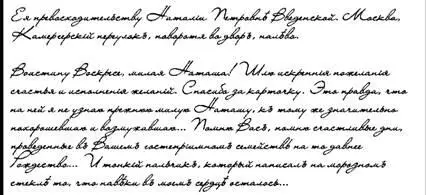 Ея превосходительству Наталіи Петровнѣ Введенской. Москва,
Камергерскій переулокъ, поворотя во дворъ, налѣво.
Воистину Воскресе, милая Наташа! Шлю искреннія пожеланія
счастья и исполненія желаній. Спасибо за карточку. Это правда, что
на ней я не узнаю прежнюю милую Наташу, къ тому же значительно
похорошевшую и возмужавшую... Помню Васъ, помню счастливые дни,
проведенные въ Вашемъ гостепріимномъ семействѣ на то давнее
Рождество... И тонкій пальчикъ, который написалъ на морозномъ
стеклѣ то, что навѣки въ моемъ сердцѣ осталось...